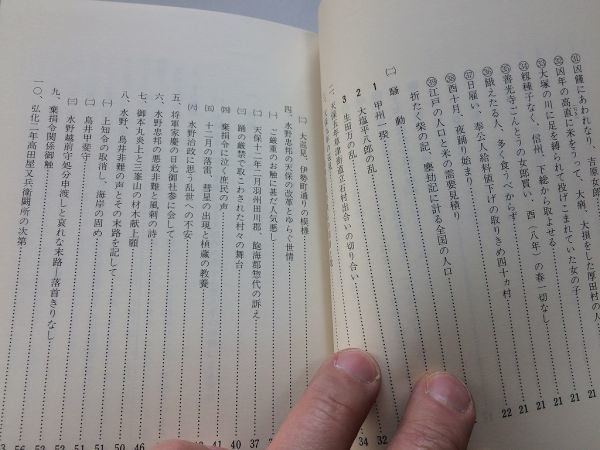 ㉛凶饉にあわれなり、吉原女郎
㉜凶年の高直に米をうって、大病、大損をした厚田村の人 21
㉝大塚の川に足を縛られて投げこまれていた女の子 21
㉞籾種子なく、信州、下総から取よせる 21
㉟善光寺ごんどうの女郎買い 酉(八年)の春一切なし 21
㊱餓えたる人、多く食うべからず 21
㊲日雇い、奉公人給料値下げの取りきめ四十カ村 22
㊲酉十月、夜踊り始まり
㊳江戸の人口と米の需要見積り
㊴折たく柴の記、塵劫記に計る全国の人口
㈡ 騒動
1 甲州一揆 32
2 大塩平八郎の乱 34
3 生田万の乱
天保 年草津街道立石村出合いの切り合い
㈡ 大巡見、伊勢町通りの模様
四、水野忠邦の天保の改革とめぐる世情
㈠ ご厳重のお触に甚だ人気悪し
㈡ 天保十二年二月羽州田川郡、飽海郡惣代の訴え 37
㈢ 踊の厳禁で取こわされた村々の舞台 40
㈣ 棄捐令に泣く庶民の声 41
㈤ 十二月の落雷、彗星の出現と楨蔵の教養
㈥ 水野治政に思う乱世への不安
五、将軍家慶の日光御社参に会して
六、水野忠邦の悪政非難と風刺の詩 46
七、御本丸炎上と三峯山の材木献上願 50
八、水野、鳥井非難の声とその末路を記して 51
㈠ 上知令の取消し、海岸の固め 51
㈡ 鳥井甲斐守 52
㈢ 水野越前守処分申渡しと哀れな末路―落首きりなし 53
九、棄捐令関係御触 56
一〇、弘化二年高田屋又兵衛闕所の次第